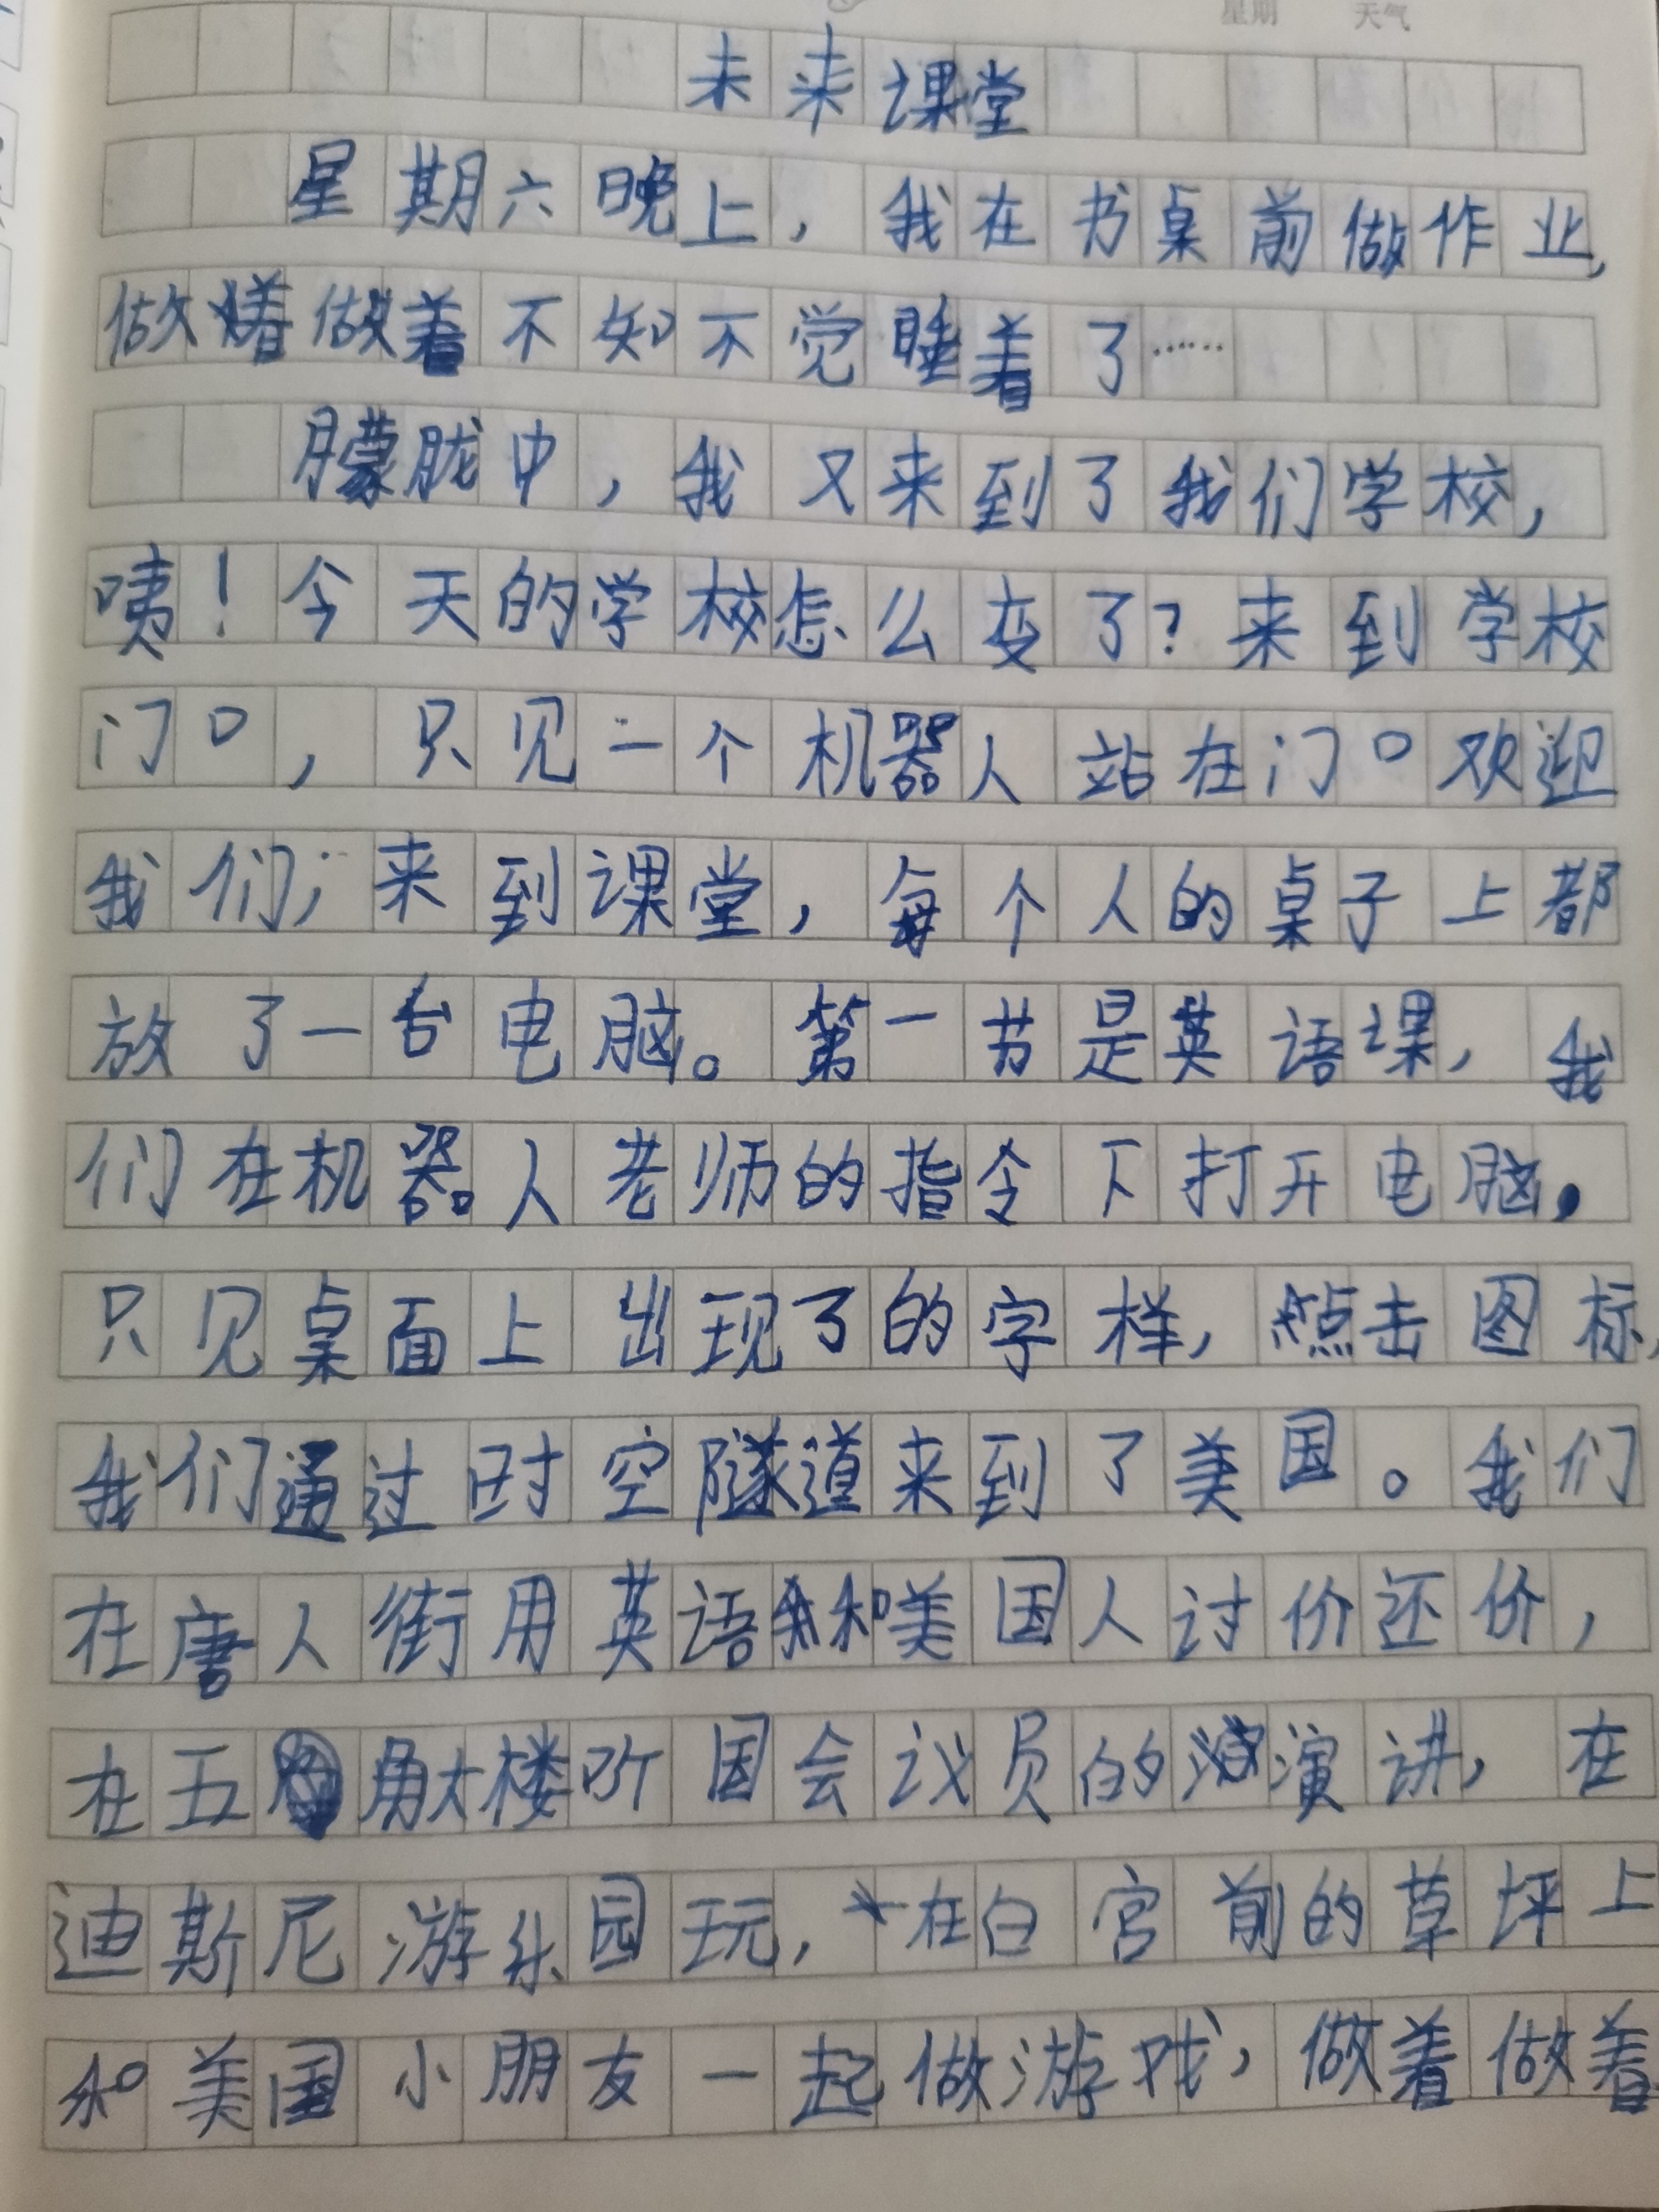 星期 天气
未来课堂
星期六晚上，我在书桌前做作业，
做着做着不知不觉睡着了……
朦胧中，我又来到了我们学校，
咦！今天的学校怎么变了？来到学校
门口，只见一个机器人站在门口欢迎
我们；来到课堂，每个人的桌子上都
放了一台电脑。第一节是英语课，我
们在机器人老师的指令下打开电脑，
只见桌面上出现了的字样，点击图标，
我们通过时空隧道来到了美国。我们
在唐人街用英语和美国人讨价还价，
在五角大楼听国会议员的演讲，在
迪斯尼游乐园玩，在白宫前的草坪上
和美国小朋友一起做游戏，做着做着